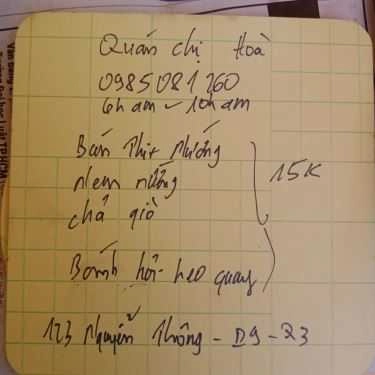 Quán chị Hoà
0985 081 260
6h am - 10h am
Bún Thịt Nướng
Nem nướng
chả giò
15K
Bánh hỏi - heo quay
123 Nguyễn Thông - P9 - Q3